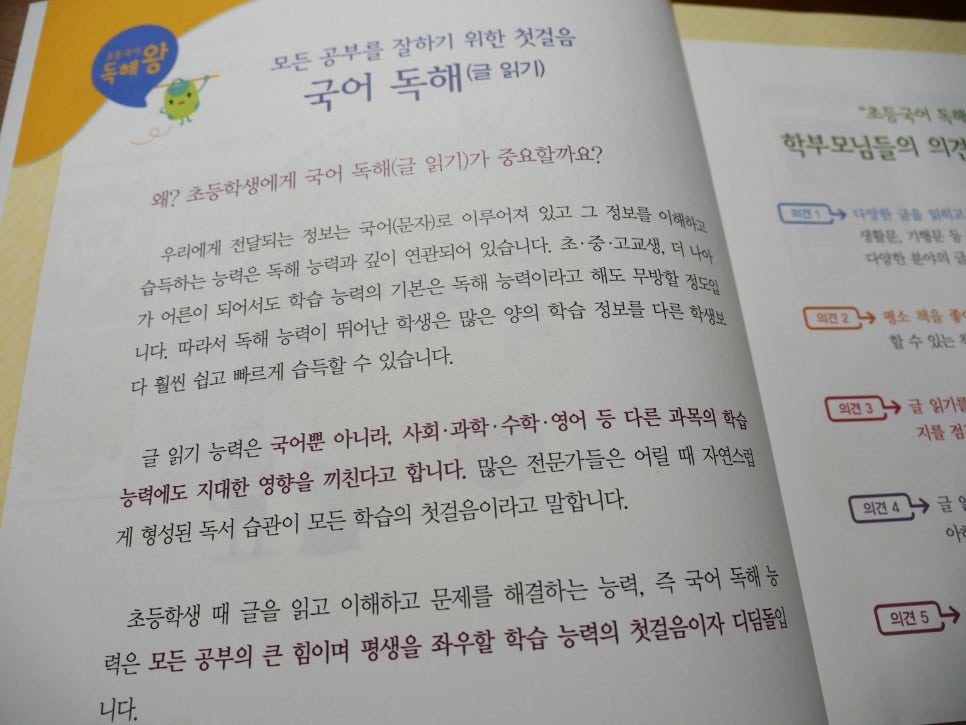 초등국어
독해왕
모든 공부를 잘하기 위한 첫걸음
국어 독해(글 읽기)
왜? 초등학생에게 국어 독해(글 읽기)가 중요할까요?
우리에게 전달되는 정보는 국어(문자)로 이루어져 있고 그 정보를 이해하고
습득하는 능력은 독해 능력과 깊이 연관되어 있습니다. 초·중·고교생, 더 나아
가 어른이 되어서도 학습 능력의 기본은 독해 능력이라고 해도 무방할 정도입
니다. 따라서 독해 능력이 뛰어난 학생은 많은 양의 학습 정보를 다른 학생보
다 훨씬 쉽고 빠르게 습득할 수 있습니다.
글 읽기 능력은 국어뿐 아니라, 사회·과학·수학·영어 등 다른 과목의 학습
능력에도 지대한 영향을 끼친다고 합니다. 많은 전문가들은 어릴 때 자연스럽
게 형성된 독서 습관이 모든 학습의 첫걸음이라고 말합니다.
초등학생 때 글을 읽고 이해하고 문제를 해결하는 능력, 즉 국어 독해 능
력은 모든 공부의 큰 힘이며 평생을 좌우할 학습 능력의 첫걸음이자 디딤돌입
니다.
"초등국어 독해
학부모님들의 의견
의견 1 다양한 글을 읽히고
생활문, 기행문 등
다양한 분야의 글
의견 2 평소 책을 좋아
할 수 있는
의견 3 글 읽기를
지를 점
의견 4 글
의견 5